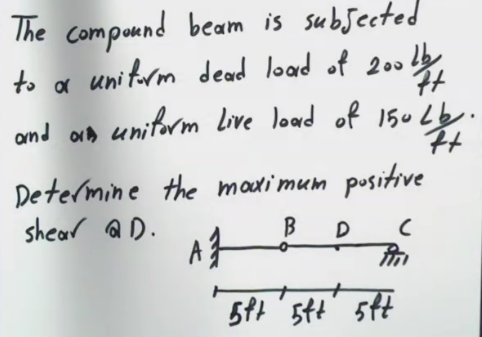 The compound beam is subjected
to a uniform dead load of 200 lb/ft
and a uniform Live load of 150 Lb/ft.
Determine the maximum positive
shear @ D.
A B D C
5ft 5ft 5ft